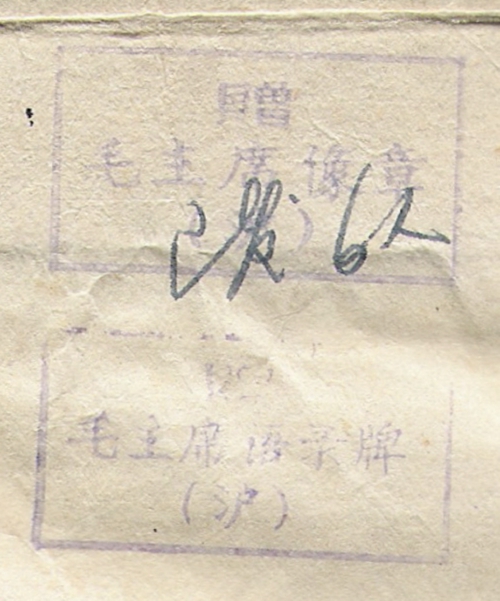 赠
毛主席像章
已发 6人
赠
毛主席语录牌
(沪)